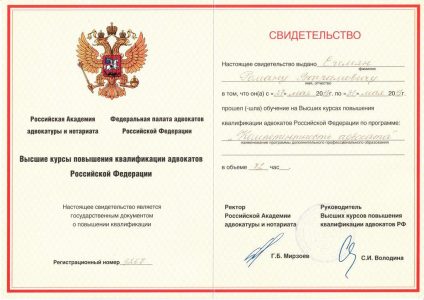 Российская Академия
адвокатуры и нотариата
Федеральная палата адвокатов
Российской Федерации
Высшие курсы повышения квалификации адвокатов
Российской Федерации
Настоящее свидетельство является
государственным документом
о повышении квалификации
Регистрационный номер
СВИДЕТЕЛЬСТВО
Настоящее свидетельство выдано
фамилия
Роману
имя, отчество
в том, что он(а) с «» мая 20 г. по «» мая 20 г.
прошел (-шла) обучение на Высших курсах повышения
квалификации адвокатов Российской Федерации по программе:
адвоката"
наименование программы дополнительного профессионального образования
в объеме 72 час
Ректор
Российской Академии
адвокатуры и нотариата
Г.Б. Мирзоев
Руководитель
Высших курсов повышения
квалификации адвокатов РФ
С.И. Володина